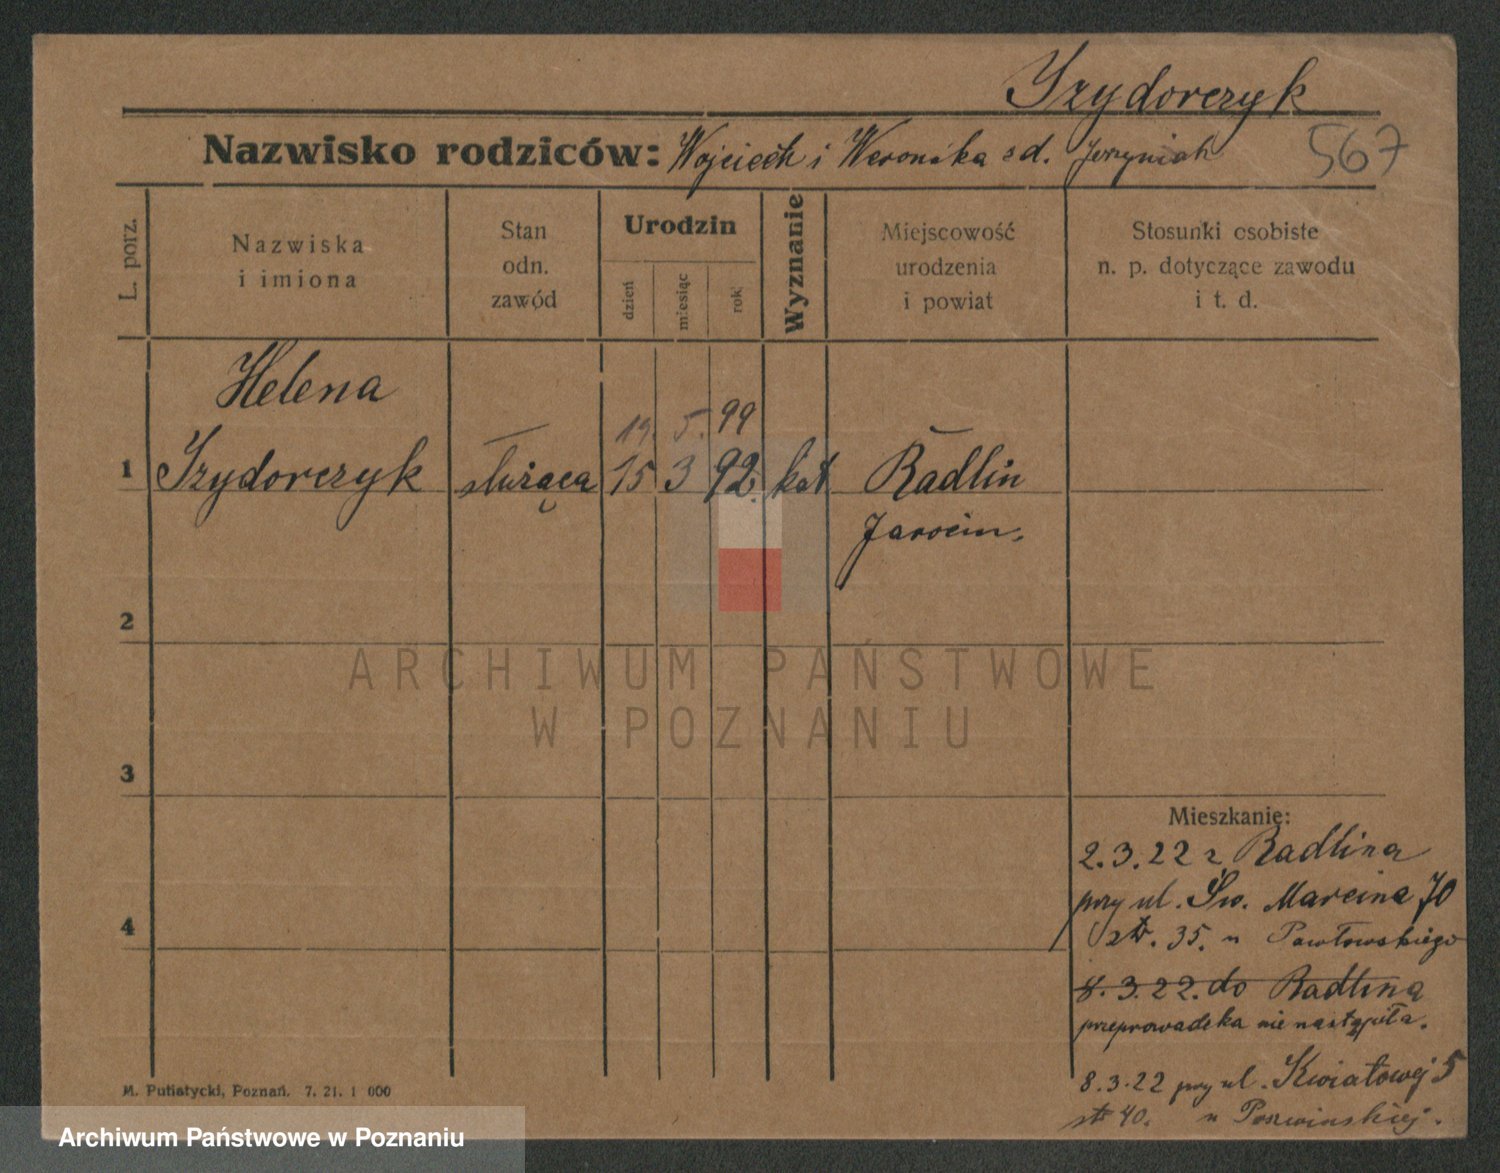 Izydorczyk
Nazwisko rodziców: Wojciech i Weronika z d. Jerzyniak 567
L. porz.
Nazwiska
i imiona
Stan
odn.
zawód
Urodzin
dzień
miesiąc
rok
Wyznanie
Miejscowość
urodzenia
i powiat
Stosunki osobiste
n. p. dotyczące zawodu
i t. d.
Helena
19. 5. 99
1 Izydorczyk służąca 15 3 92. kat Radlin
Jarocin.
2
ARCHIWUM PAŃSTWOWE
W POZNANIU
3
Mieszkanie:
2.3.22 z Radlina
przy ul. Św. Marcina 70
35. u Pawłowskiego
4
8.3.22. do Radlina
przeprowadzka nie nastąpiła.
8.3.22 przy ul. Kwiatowej 5
40. u
M. Putiatycki, Poznań. 7. 21. 1 000
Archiwum Państwowe w Poznaniu